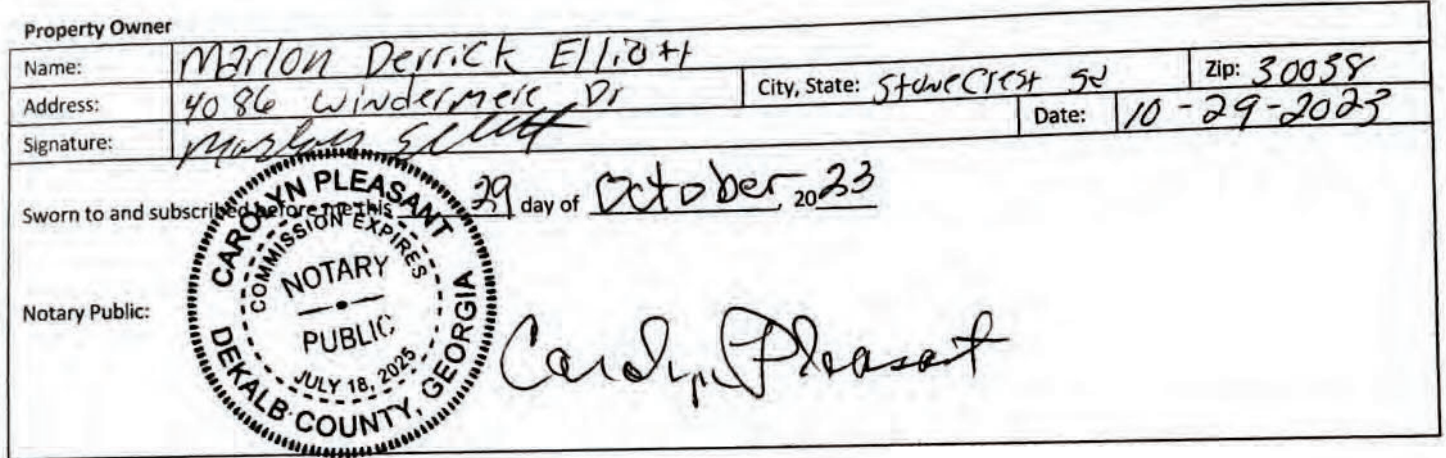 Property Owner
Name: Marlon Derrick Elliott
Address: 4086 Windermere Dr City, State: StoneCrest ga Zip: 30038
Signature: Date: 10-29-2023
Sworn to and subscribed before me this 29 day of October, 2023
Notary Public:
CAROLYN PLEASANT
COMMISSION EXPIRES
NOTARY
PUBLIC
JULY 18, 2025
DEKALB COUNTY, GEORGIA
Carolyn Pleasant